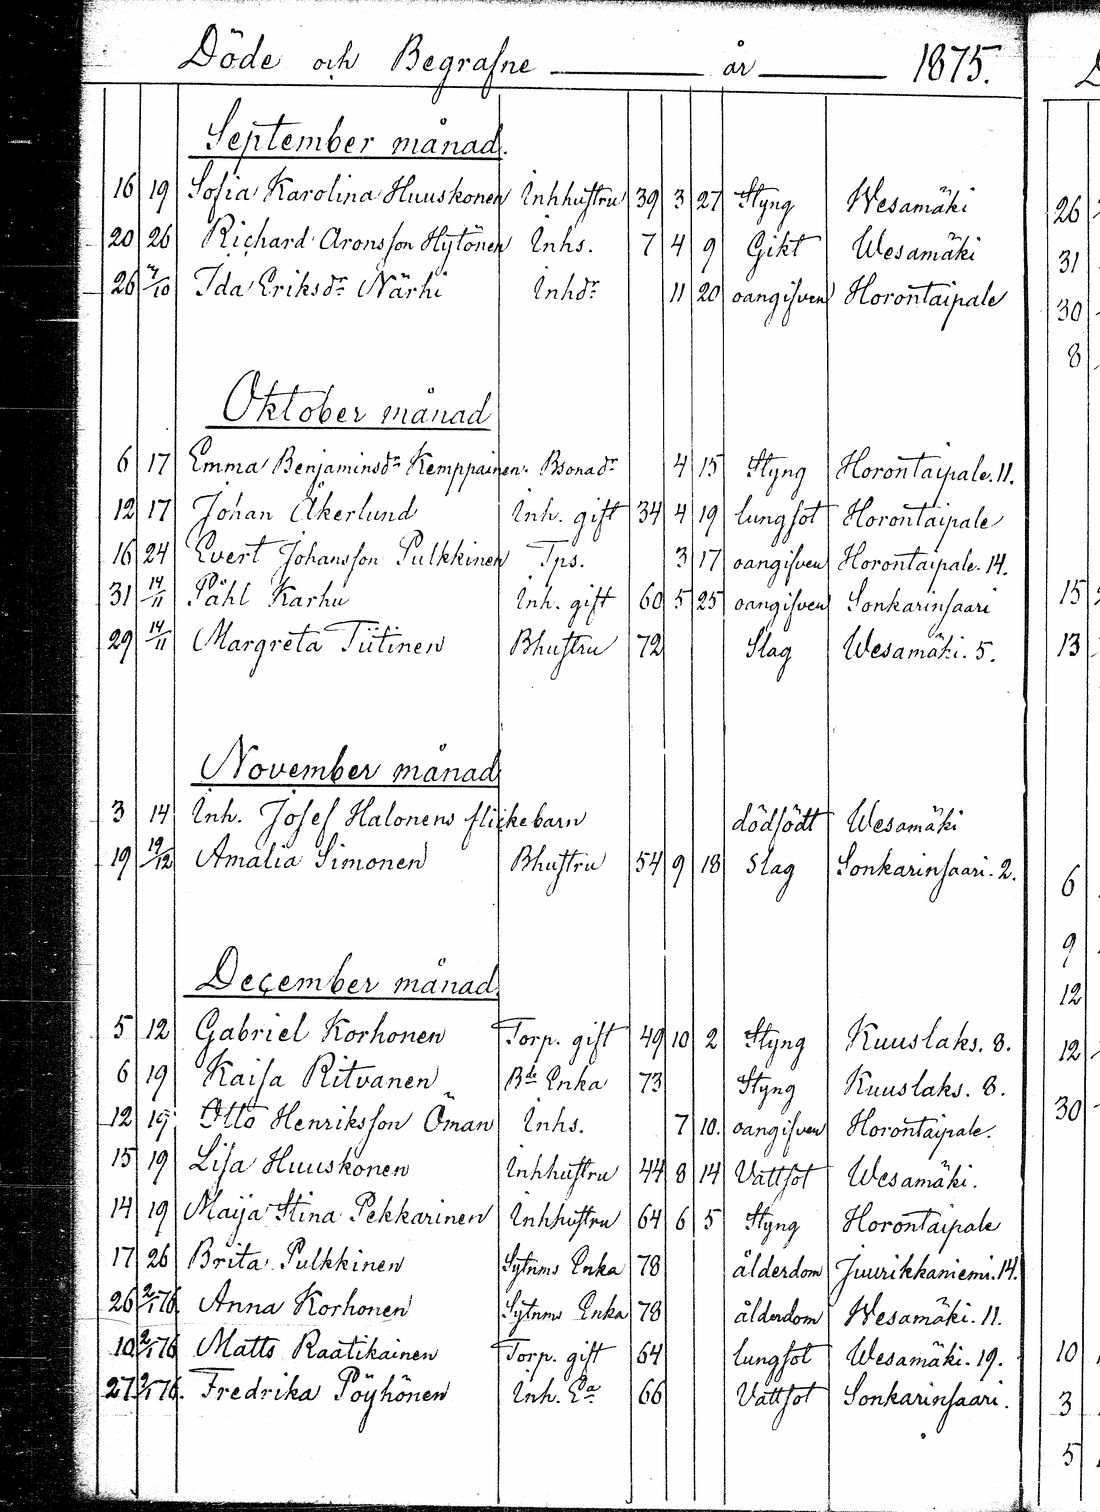 Döde och Begrafne år 1875.
September månad.
16 19 Sofia Karolina Huuskonen Inhhustru 39 3 27 Styng Wesamäki
20 26 Richard Aronsson Hytönen Inhs. 7 4 9 Gikt Wesamäki
26 4/10 Ida Eriksdr Närhi Inhdr 11 20 oangifven Horontaipale
Oktober månad
6 17 Emma Benjaminsdr Kemppainen. Bsonadr 4 15 Styng Horontaipale. 11.
12 17 Johan Åkerlund Inh. gift 34 4 19 lungsot Horontaipale
16 24 Evert Johansson Pulkkinen Tps. 3 17 oangifven Horontaipale. 14.
31 14/11 Påhl Karhu Inh. gift 60 5 25 oangifven Sonkarinsaari
29 14/11 Margreta Tiitinen Bhustru 72 Slag Wesamäki. 5.
November månad
3 14 Inh. Josef Halonens flickebarn dödfödt Wesamäki
19 19/12 Amalia Simonen Bhustru 54 9 18 Slag Sonkarinsaari. 2.
December månad
5 12 Gabriel Korhonen Torp. gift 49 10 2 Styng Kuuslaks. 8.
6 19 Kaisa Ritvanen Bde Enka 73 Styng Kuuslaks. 8.
12 19 Otto Henriksson Öman Inhs. 7 10. oangifven Horontaipale.
15 19 Lisa Huuskonen Inhhustru 44 8 14 Vattsot Wesamäki.
14 19 Maija Stina Pekkarinen Inhhustru 64 6 5 Styng Horontaipale
17 26 Brita Pulkkinen Sytnms Enka 78 ålderdom Juurikkaniemi. 14.
26 2/1 76. Anna Korhonen Sytnms Enka 78 ålderdom Wesamäki. 11.
10 2/1 76 Matts Raatikainen Torp. gift 64 lungsot Wesamäki. 19.
27 2/1 76. Fredrika Pöyhönen Inh. Ea 66 Vattsot Sonkarinsaari.
26
31
30
8
15
13
6
9
12
12
30
10
3
5